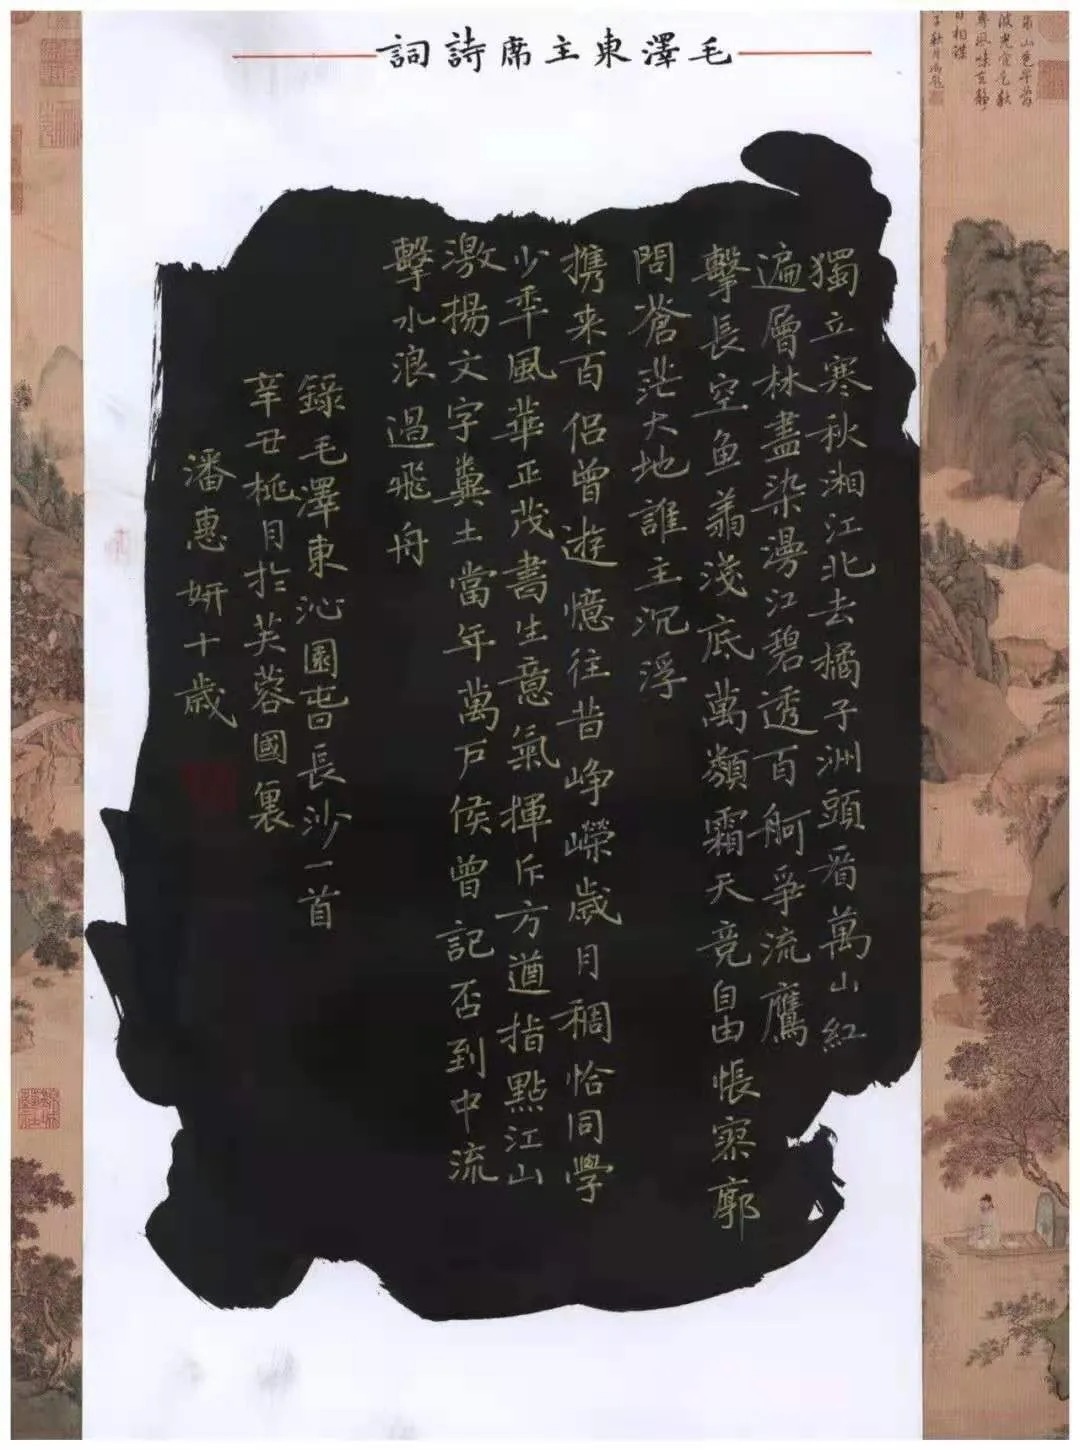 毛澤東主席詩詞
獨立寒秋湘江北去橘子洲頭看萬山紅
遍層林盡染漫江碧透百舸爭流鷹
擊長空鱼翔淺底萬類霜天竞自由悵寥廓
問蒼茫大地誰主沉浮
携来百侣曾遊憶往昔崢嶸歲月稠恰同學
少年風華正茂書生意氣揮斥方遒指點江山
激揚文字糞土當年萬户侯曾記否到中流
擊水浪遏飛舟
錄毛澤東沁園春長沙一首
辛丑桃月於芙蓉國裏
潘惠妍十歲